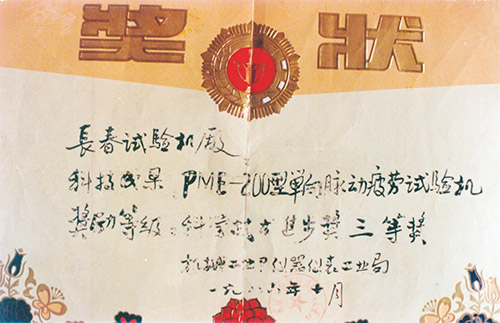 奖状
长春试验机厂
科技成果:PME-200型单向脉动疲劳试验机
奖励等级:科学技术进步奖三等奖
机械工业部仪器仪表工业局
一九八六年十月